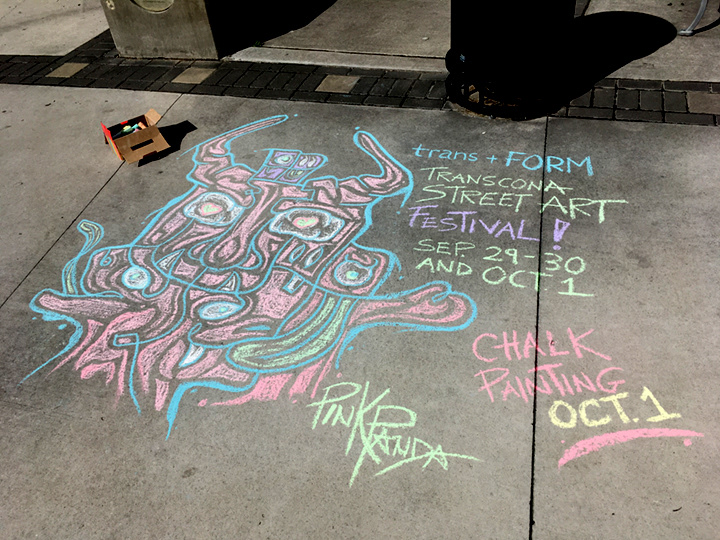 trans + FORM
TRANSCONA
STREET ART
FESTIVAL!
SEP. 29-30
AND OCT. 1
CHALK
PAINTING
OCT. 1
PINK
PANDA